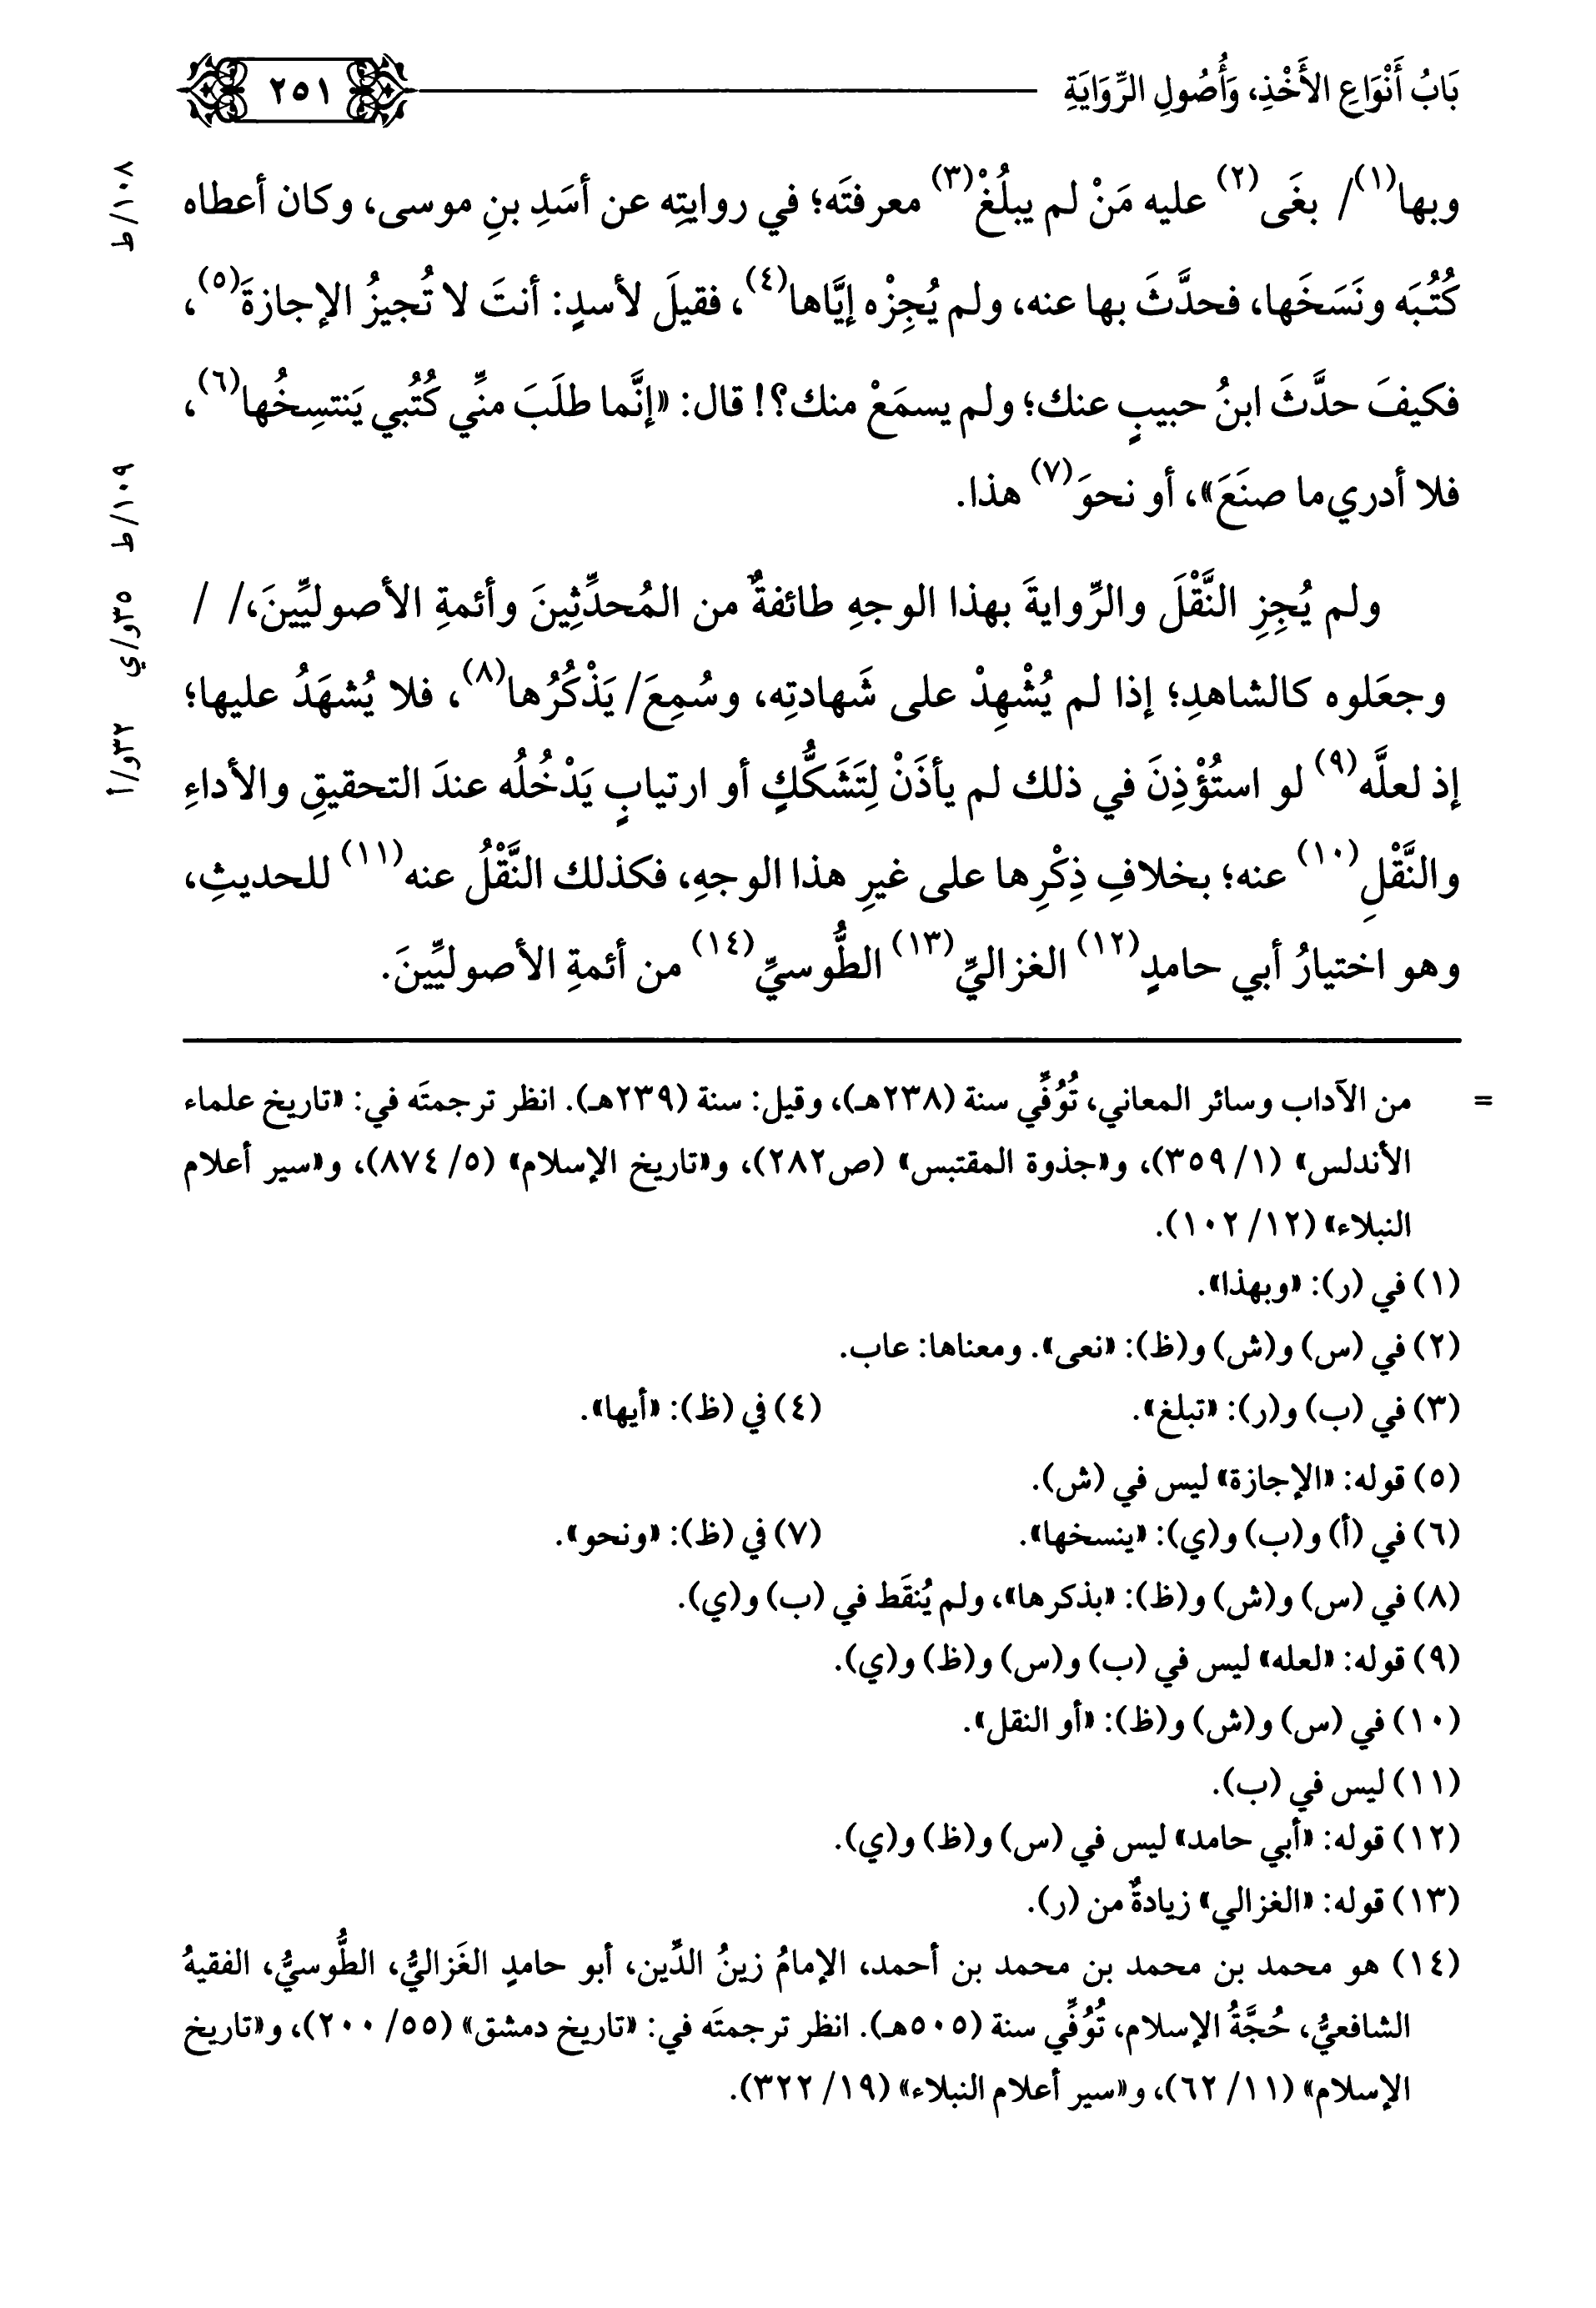 بَابُ أَنْوَاعِ الأَخْذِ، وَأُصُولِ الرِّوَايَةِ ٢٥١
وبها(١)/ بغَى(٢) عليه مَنْ لم يبلُغْ(٣) معرفتَه؛ في روايتِه عن أسَدِ بنِ موسى، وكان أعطاه
١٠٨/ظ
كُتُبَه ونَسَخَها، فحدَّثَ بها عنه، ولم يُجِزْه إيَّاها(٤)، فقيلَ لأسدٍ: أنتَ لا تُجيزُ الإجازةَ(٥)،
فكيفَ حدَّثَ ابنُ حبيبٍ عنك؛ ولم يسمَعْ منك؟! قال: «إنَّما طلَبَ منِّي كُتُبي يَنتسِخُها(٦)،
فلا أدري ما صنَعَ»، أو نحوَ(٧) هذا.
١٠٩/ظ
ولم يُجِزِ النَّقْلَ والرِّوايةَ بهذا الوجهِ طائفةٌ من المُحدِّثِينَ وأئمةِ الأصوليِّينَ،/ /
٣٥و/ي
وجعَلوه كالشاهدِ؛ إذا لم يُشْهِدْ على شَهادتِه، وسُمِعَ/ يَذْكُرُها(٨)، فلا يُشهَدُ عليها؛
٣٢و/أ
إذ لعلَّه(٩) لو استُؤْذِنَ في ذلك لم يأذَنْ لِتَشَكُّكٍ أو ارتيابٍ يَدْخُلُه عندَ التحقيقِ والأداءِ
والنَّقْلِ(١٠) عنه؛ بخلافِ ذِكْرِها على غيرِ هذا الوجهِ، فكذلك النَّقْلُ عنه(١١) للحديثِ،
وهو اختيارُ أبي حامدٍ(١٢) الغزاليِّ(١٣) الطُّوسيِّ(١٤) من أئمةِ الأصوليِّينَ.
= من الآداب وسائر المعاني، تُوُفِّي سنة (٢٣٨هـ)، وقيل: سنة (٢٣٩هـ). انظر ترجمتَه في: «تاريخ علماء
الأندلس» (١/ ٣٥٩)، و«جذوة المقتبس» (ص٢٨٢)، و«تاريخ الإسلام» (٥/ ٨٧٤)، و«سير أعلام
النبلاء» (١٢/ ١٠٢).
(١) في (ر): «وبهذا».
(٢) في (س) و(ش) و(ظ): «نعى». ومعناها: عاب.
(٣) في (ب) و(ر): «تبلغ». (٤) في (ظ): «أيها».
(٥) قوله: «الإجازة» ليس في (ش).
(٦) في (أ) و(ب) و(ي): «ينسخها». (٧) في (ظ): «ونحو».
(٨) في (س) و(ش) و(ظ): «بذكرها»، ولم يُنقَط في (ب) و(ي).
(٩) قوله: «لعله» ليس في (ب) و(س) و(ظ) و(ي).
(١٠) في (س) و(ش) و(ظ): «أو النقل».
(١١) ليس في (ب).
(١٢) قوله: «أبي حامد» ليس في (س) و(ظ) و(ي).
(١٣) قوله: «الغزالي» زيادةٌ من (ر).
(١٤) هو محمد بن محمد بن محمد بن أحمد، الإمامُ زينُ الدِّين، أبو حامدٍ الغَزاليُّ، الطُّوسيُّ، الفقيهُ
الشافعيُّ، حُجَّةُ الإسلام، تُوُفِّي سنة (٥٠٥هـ). انظر ترجمتَه في: «تاريخ دمشق» (٥٥/ ٢٠٠)، و«تاريخ
الإسلام» (١١/ ٦٢)، و«سير أعلام النبلاء» (١٩/ ٣٢٢).